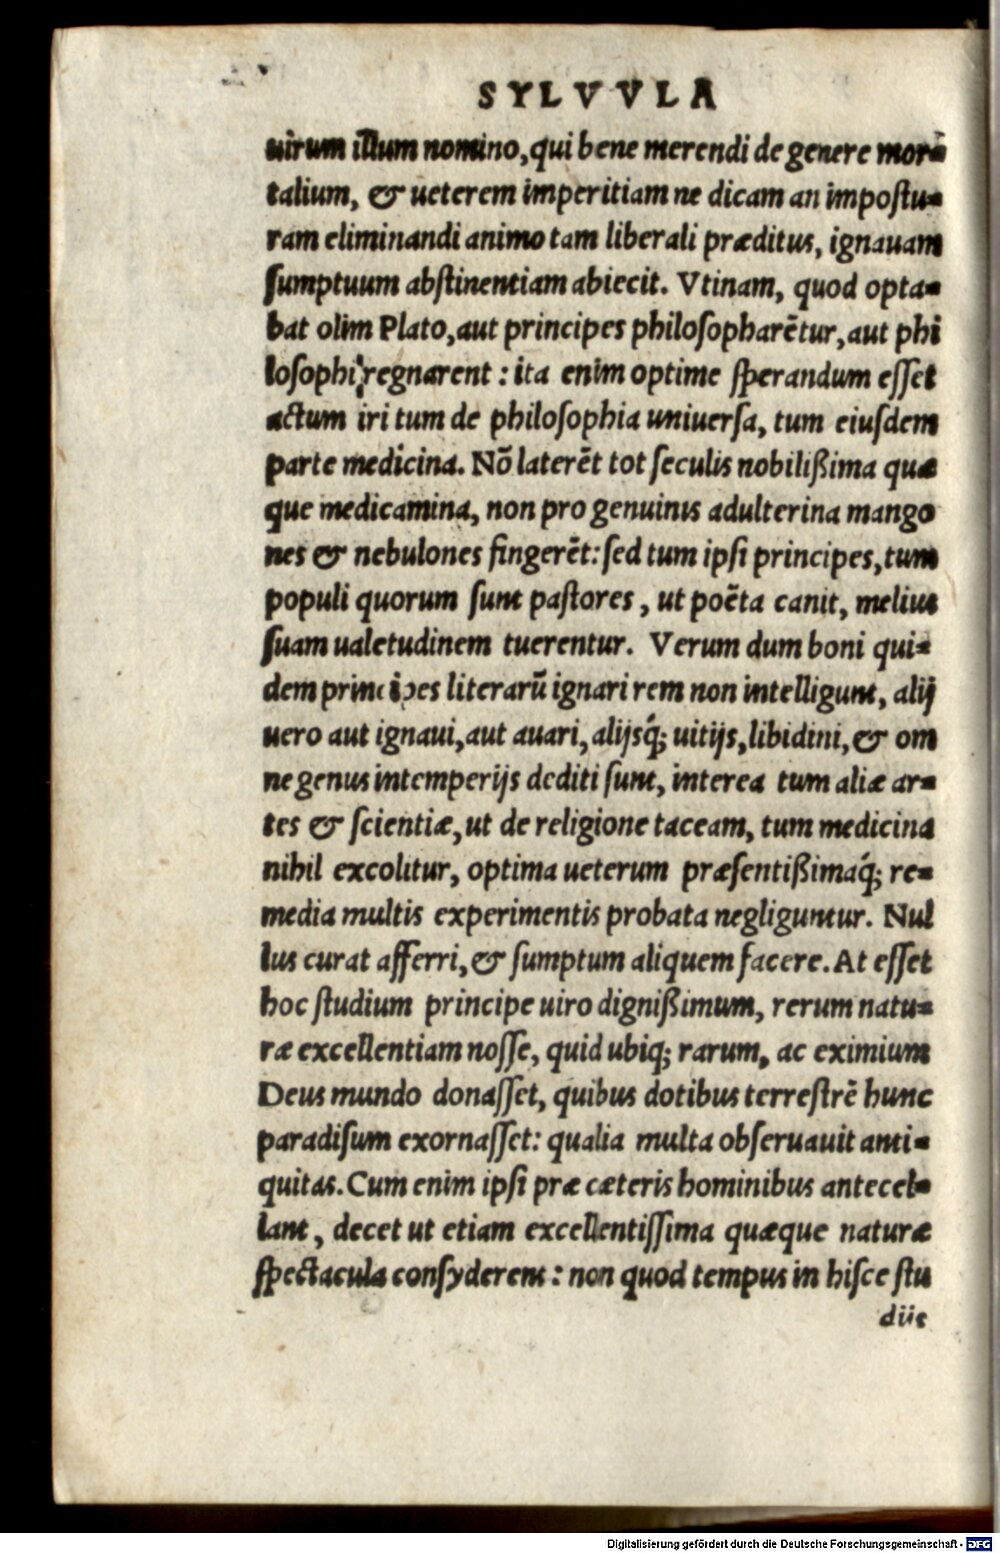 SYLVVLA
uirum illum nomino, qui bene merendi de genere mor-
talium, & ueterem imperitiam ne dicam an impostu-
ram eliminandi animo tam liberali præditus, ignauam
ſumptuum abſtinentiam abiecit. Vtinam, quod opta-
bat olim Plato, aut principes philoſopharētur, aut phi
loſophi regnarent : ita enim optime ſperandum eſſet
actum iri tum de philoſophia uniuerſa, tum eiuſdem
parte medicina. Nō laterēt tot ſeculis nobilißima quæ
que medicamina, non pro genuinis adulterina mango
nes & nebulones fingerēt: ſed tum ipſi principes, tum
populi quorum ſunt paſtores, ut poëta canit, melius
ſuam ualetudinem tuerentur. Verum dum boni qui-
dem principes literarū ignari rem non intelligunt, alij
uero aut ignaui, aut auari, alijsq́; uitijs, libidini, & om
ne genus intemperijs dediti ſunt, interea tum aliæ ar-
tes & ſcientiæ, ut de religione taceam, tum medicina
nihil excolitur, optima ueterum præſentißimaq́; re-
media multis experimentis probata negliguntur. Nul
lus curat afferri, & ſumptum aliquem facere. At eſſet
hoc ſtudium principe uiro dignißimum, rerum natu-
ræ excellentiam noſſe, quid ubiq; rarum, ac eximium
Deus mundo donaſſet, quibus dotibus terreſtrē hunc
paradiſum exornaſſet: qualia multa obſeruauit anti-
quitas. Cum enim ipſi præ cæteris hominibus antecel-
lant, decet ut etiam excellentiſſima quæque naturæ
ſpectacula conſyderent : non quod tempus in hiſce ſtu
diis
Digitalisierung gefördert durch die Deutsche Forschungsgemeinschaft - DFG